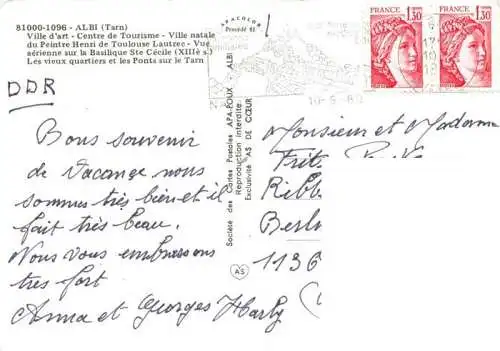 81000-1096 - ALBI (Tarn)
Ville d'art - Centre de Tourisme - Ville natale
du Peintre Henri de Toulouse Lautrec - Vue
aérienne sur la Basilique Ste Cécile (XIIIè s.)
Les vieux quartiers et les Ponts sur le Tarn
APACOLOR
DDR
Bons souvenir
de Vacance nous
sommes très bien et il
fait très beau.
Nous vous embrassons
très fort
Anna et Georges Harly
Société des Cartes Postales APA-POUX - ALBI
Reproduction interdite
Exclusivité AS DE CŒUR
AS
1,30
1,30
Monsieur et Madame
Fritz
Ribb
Berl
1136